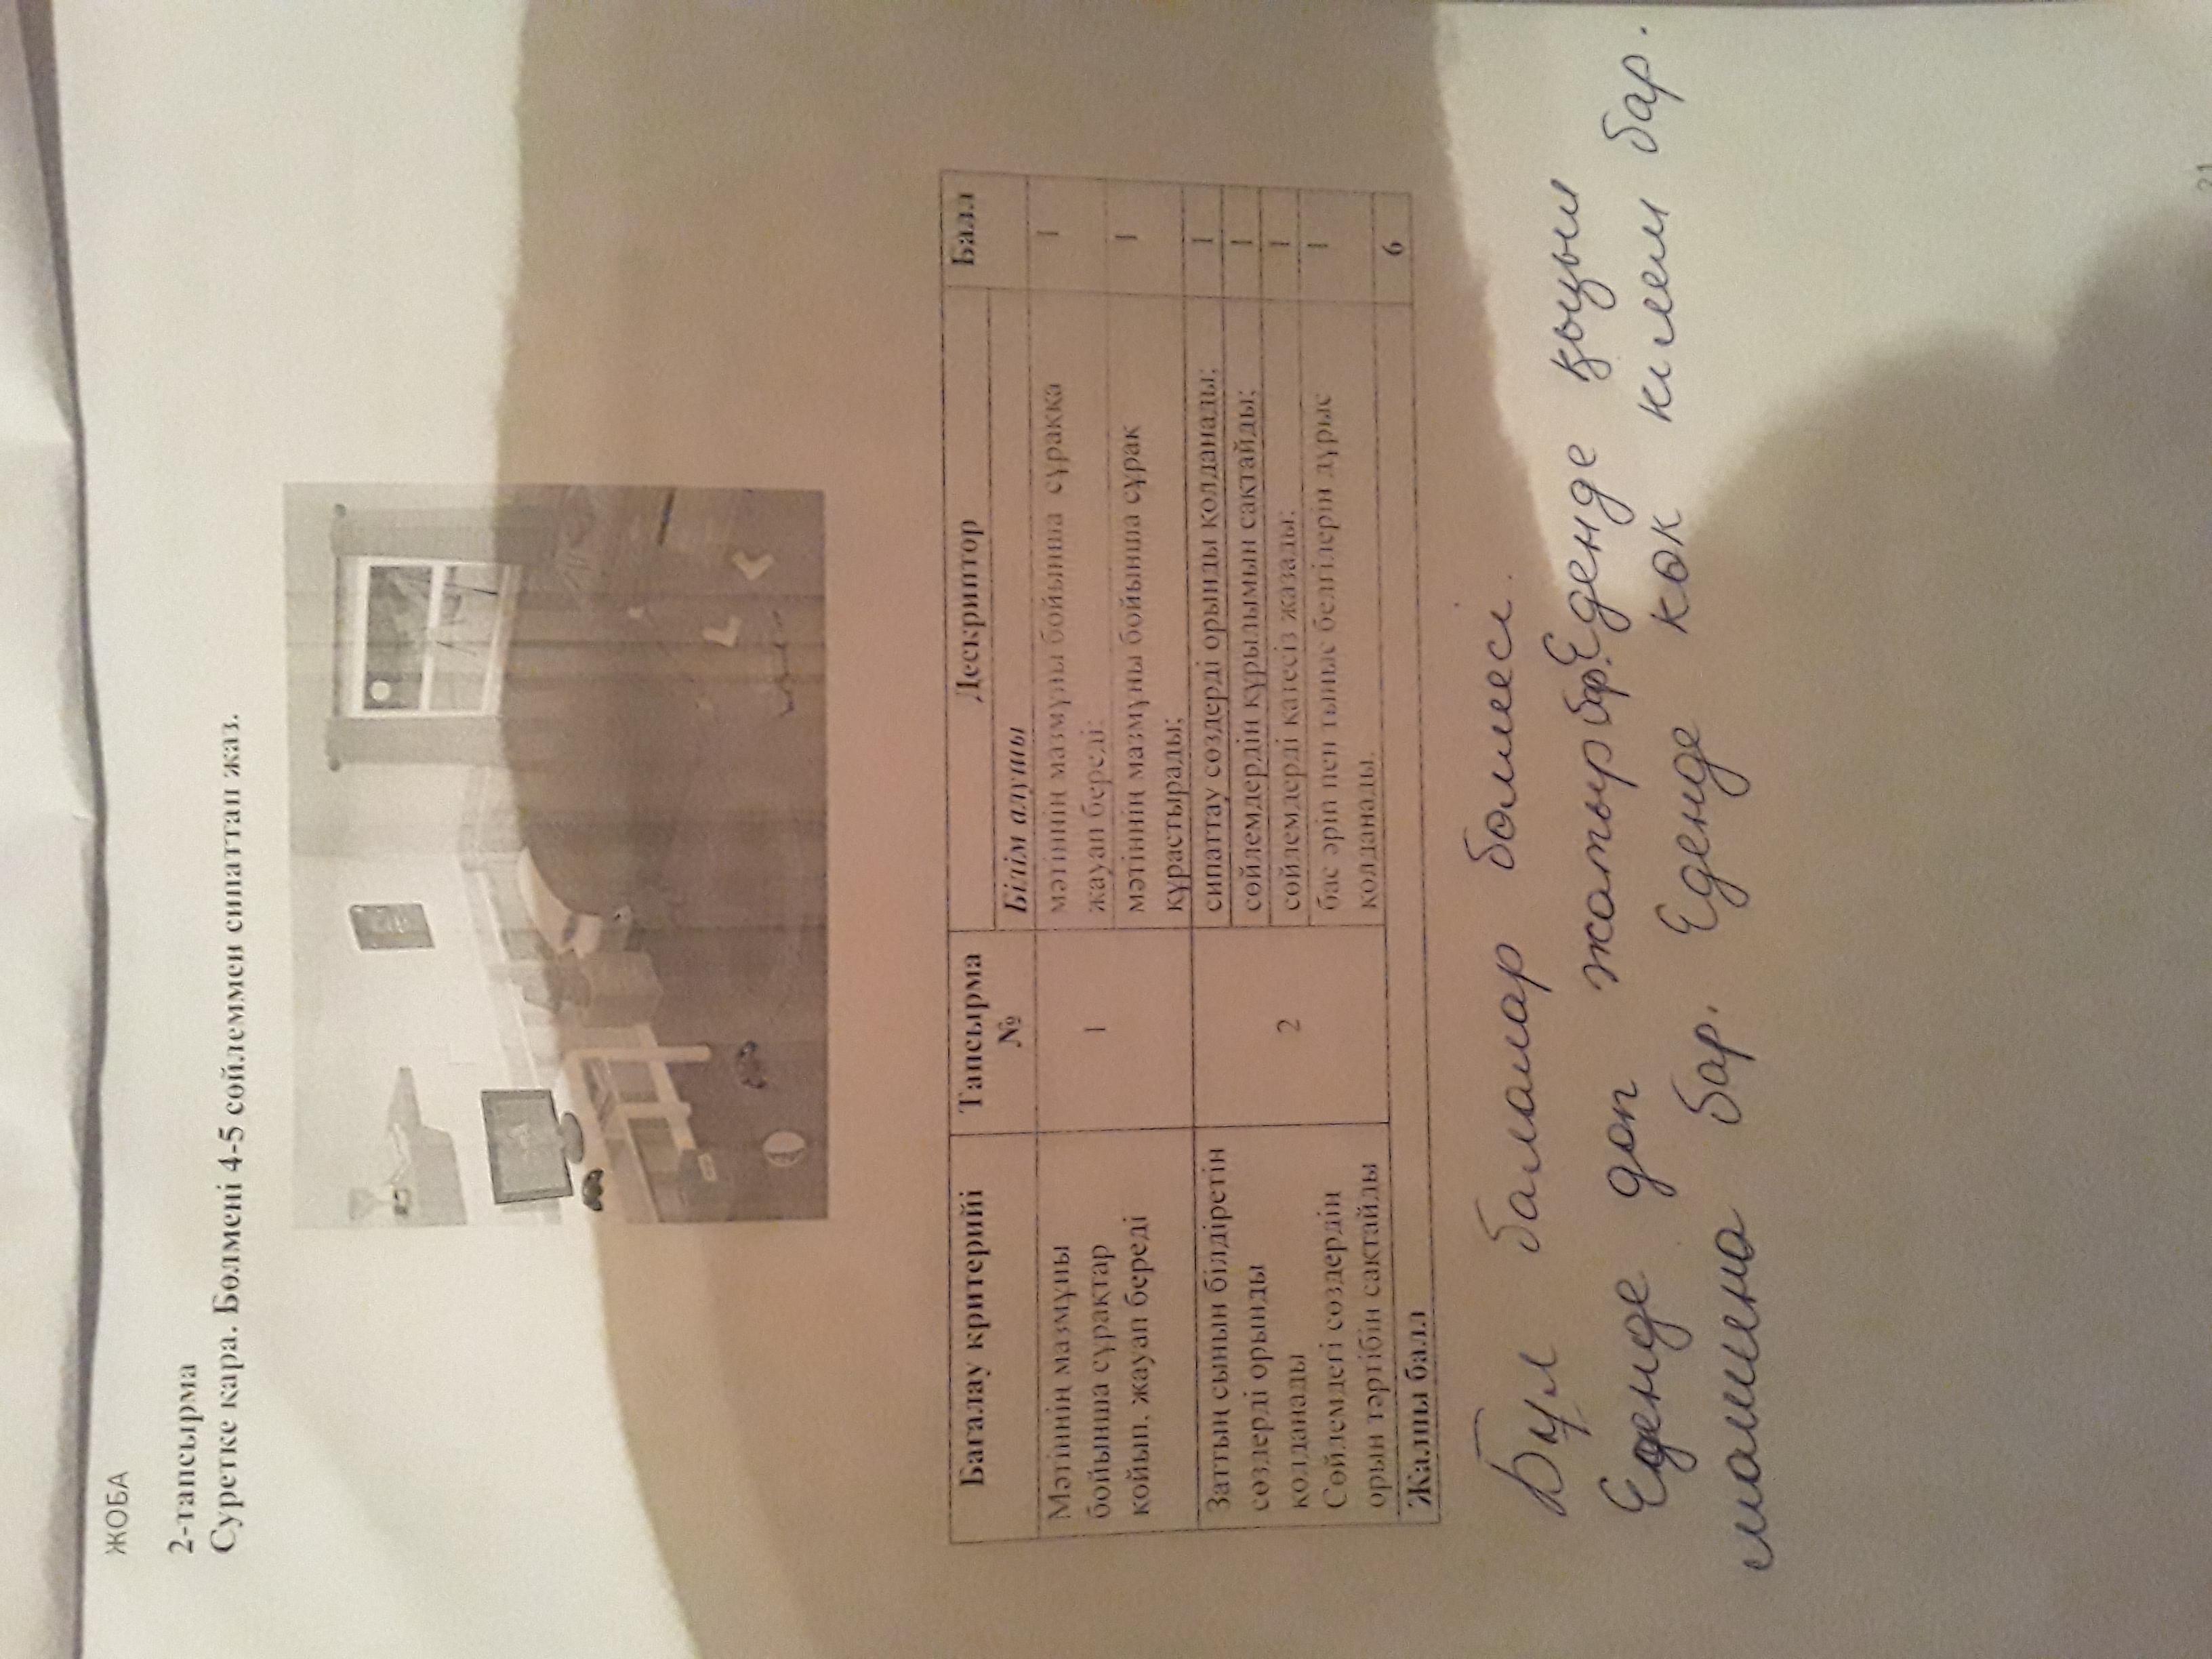 ЖОБА
2-тапсырма
Суретке қара. Бөлмені 4-5 сөйлеммен сипаттап жаз.
Бағалау критерийі Тапсырма № Дескриптор Балл
Білім алушы
Мәтіннің мазмұны бойынша сұрақтар қойып, жауап береді 1 мәтіннің мазмұны бойынша сұраққа жауап береді; 1
мәтіннің мазмұны бойынша сұрақ құрастырады; 1
Заттың сынын білдіретін сөздерді орынды қолданады 2 сипаттау сөздерді орынды қолданады; 1
Сөйлемдегі сөздердің орын тәртібін сақтайды сөйлемдердің құрылымын сақтайды; 1
сөйлемдерді қатесіз жазады; 1
бас әріп пен тыныс белгілерін дұрыс қолданады. 1
Жалпы балл 6
Бұл балалар бөлмесі.
Еденде доп жатыр бар. Еденде қызыл
машина бар. Еденде көк кілем бар.
31